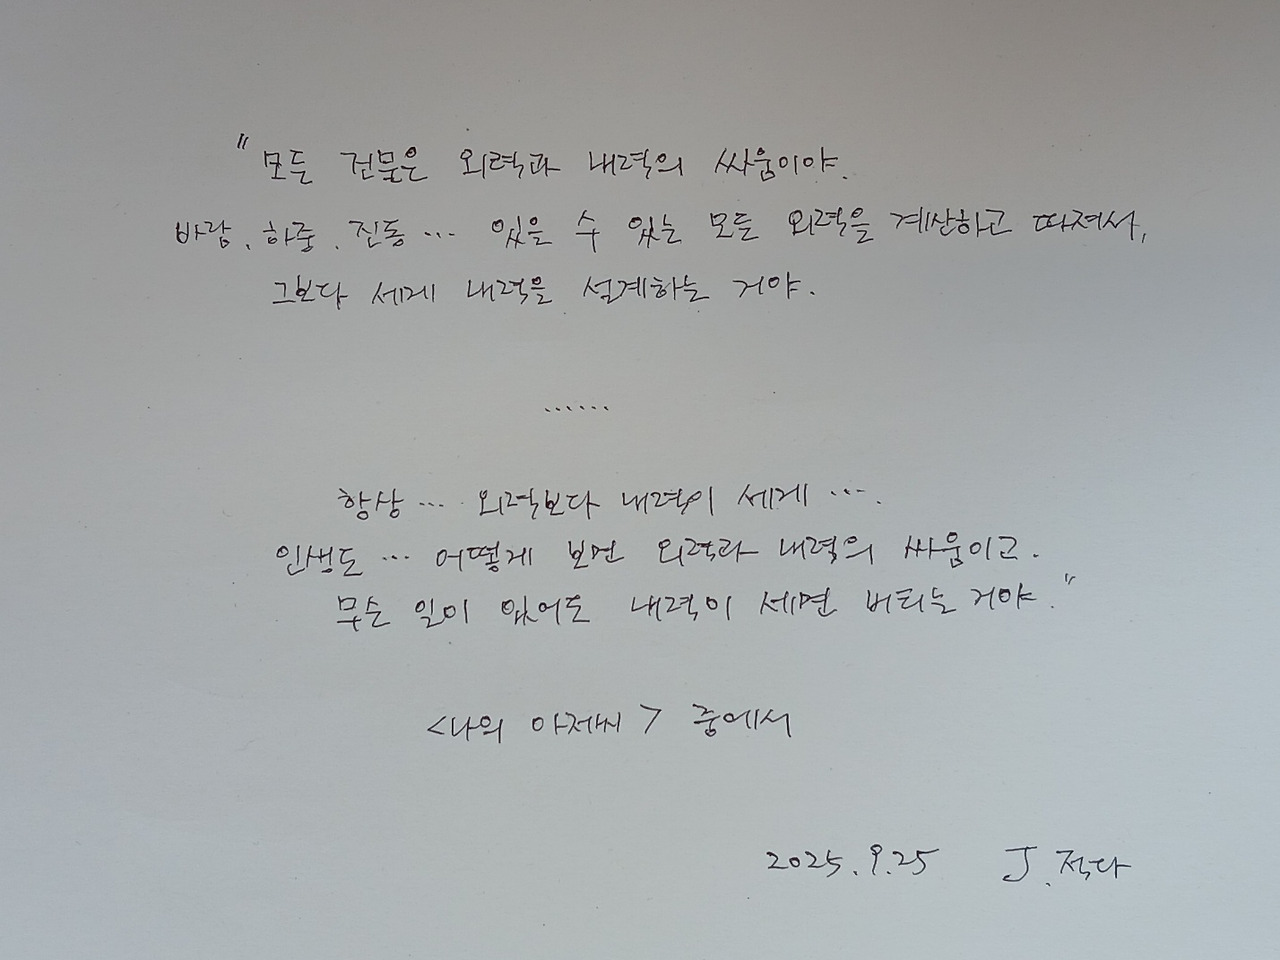 "모든 건물은 외력과 내력의 싸움이야.
바람, 하중, 진동... 있을 수 있는 모든 외력을 계산하고 따져서,
그보다 세게 내력을 설계하는 거야.
......
항상... 외력보다 내력이 세게....
인생도... 어떻게 보면 외력과 내력의 싸움이고.
무슨 일이 있어도 내력이 세면 버티는 거야."
<나의 아저씨> 중에서
2025.9.25 J.적다